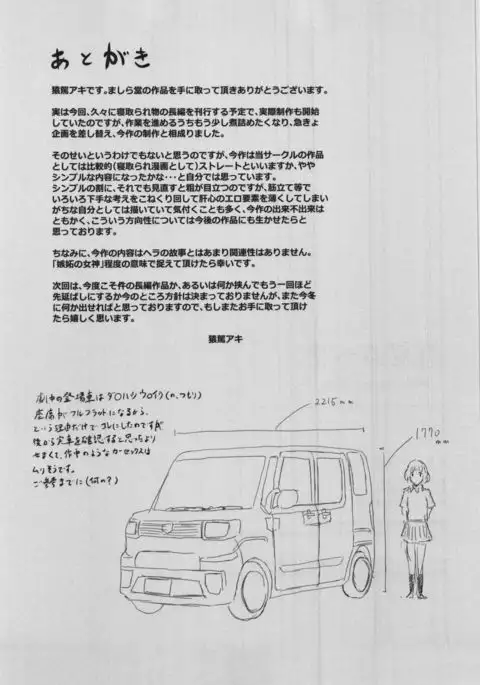 あとがき
猿駕アキです。ましら堂の作品を手に取って頂きありがとうございます。
実は今回、久々に寝取られ物の長編を刊行する予定で、実際制作も開始
していたのですが、作業を進めるうちもう少し煮詰めたくなり、急きょ
企画を差し替え、今作の制作と相成りました。
そのせいというわけでもないと思うのですが、今作は当サークルの作品
としては比較的（寝取られ漫画として）ストレートといいますか、やや
シンプルな内容になったかな・・・と自分では思っています。
シンプルの割に、それでも見直すと粗が目立つのですが、筋立て等で
いろいろ下手な考えをこねくり回して肝心のエロ要素を薄くしてしまい
がちな自分としては描いていて気付くことも多く、今作の出来不出来は
ともかく、こういう方向性については今後の作品にも生かせたらと
思っております。
ちなみに、今作の内容はヘラの故事とはあまり関連性はありません。
「嫉妬の女神」程度の意味で捉えて頂けたら幸いです。
次回は、今度こそ件の長編作品か、あるいは何か挟んでもう一回ほど
先延ばしにするか今のところ方針は決まっておりませんが、また今冬
に何か出せればと思っておりますので、もしまたお手に取って頂け
たら嬉しく思います。
猿駕アキ
劇中の登場車はダ〇ハツ ウ〇イク(の、つもり)
座席がフルフラットになるから、
という理由だけでコレにしたのですが
後から実車を確認すると思ったより
せまくて、作中のようなカーセックスは
ムリそうです。
ご参考までに(何の?)
2215mm
1770
mm